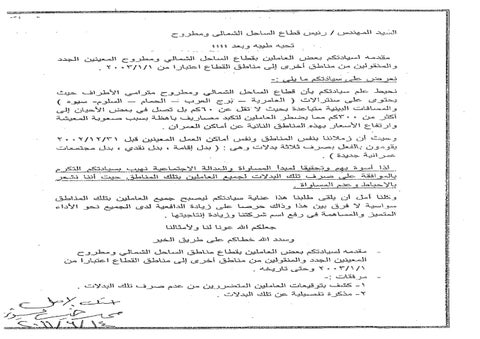 السيد المهندس / رئيس قطاع الساحل الشمالى ومطروح
تحيه طيبه وبعد ،،،،
مقدمه لسيادتكم بعض العاملين بقطاع الساحل الشمالى ومطروح المعينين الجدد
والمنقولين من مناطق أخرى إلى مناطق القطاع اعتبارا من ٢٠٠٣/١/١
نعرض على سيادتكم ما يلى :-
نحيط علم سيادتكم بأن قطاع الساحل الشمالى ومطروح مترامى الأطراف حيث
يحتوى على سنترالات ( العامرية - برج العرب - الحمام - السلوم - سيوه )
والمسافات البينية متباعدة بحيث لا تقل عن ٦٠كم بل تصل فى بعض الأحيان إلى
أكثر من ٣٠٠كم مما يضطر العاملين لتكبد مصاريف باهظة بسبب صعوبة المعيشة
وارتفاع الأسعار بهذه المناطق النائية عن أماكن العمران .
وحيث أن زملائنا بنفس المناطق ونفس أماكن العمل المعينين قبل ٢٠٠٢/١٢/٣١
يقومون بالفعل بصرف ثلاثة بدلات وهى : ( بدل إقامة ، بدل نقدى ، بدل مجتمعات
عمرانية جديدة ) .
لذا أسوة بهم وتحقيقا لمبدأ المساواة والعدالة الاجتماعية نهيب بسيادتكم التكرم
بالموافقة على صرف تلك البدلات لجميع العاملين بتلك المناطق حيث أننا نشعر
بالإحباط وعدم المساواة .
وكلنا أمل أن يلقى طلبنا هذا عناية سيادتكم ليصبح جميع العاملين بتلك المناطق
سواسية لا فرق بين هذا وذاك حرصا على زيادة الدافعية لدى الجميع نحو الأداء
المتميز والمساهمة فى رفع اسم شركتنا وزيادة إنتاجيتها .
جعلكم الله عونا لنا ولأمثالنا
وسدد الله خطاكم على طريق الخير
- مقدمه لسيادتكم بعض العاملين بقطاع الساحل الشمالى ومطروح
المعينين الجدد والمنقولين من مناطق أخرى إلى مناطق القطاع اعتبارا من
٢٠٠٣/١/١ وحتى تاريخه .
- مرفقات :-
١- كشف بتوقيعات العاملين المتضررين من عدم صرف تلك البدلات .
٢- مذكرة تفصيلية عن تلك البدلات .